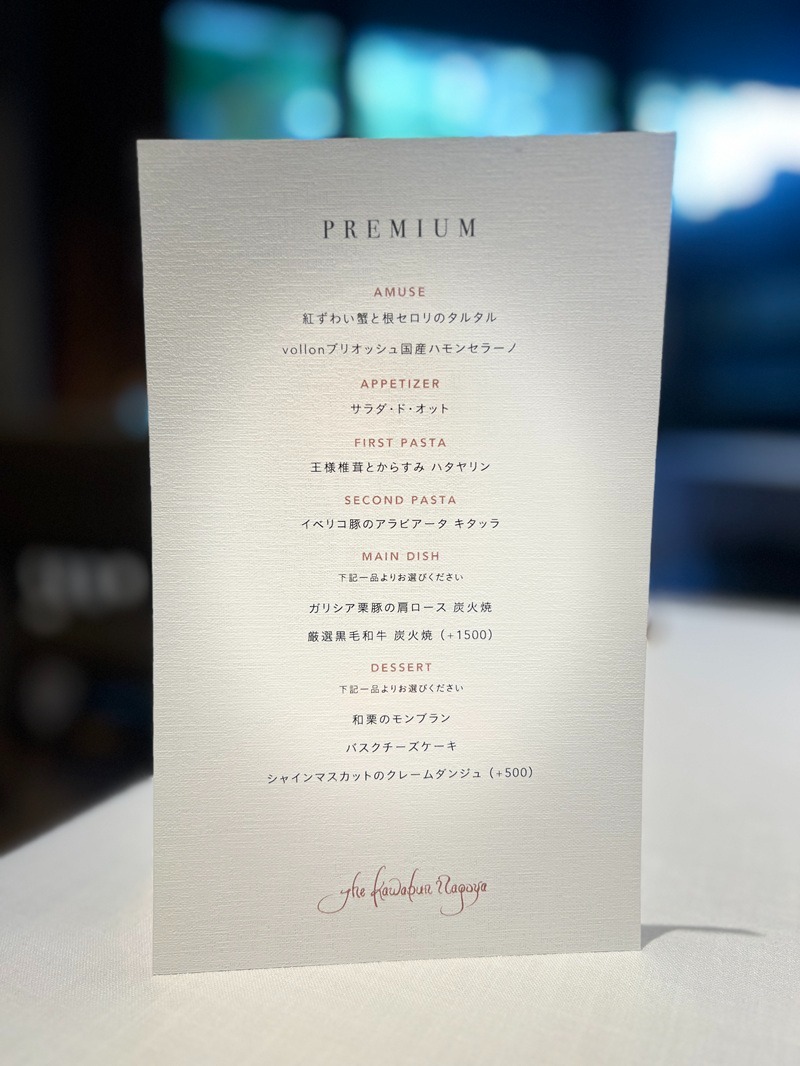 PREMIUM
AMUSE
紅ずわい蟹と根セロリのタルタル
vollonブリオッシュ国産ハモンセラーノ
APPETIZER
サラダ・ド・オット
FIRST PASTA
王様椎茸とからすみ ハタヤリン
SECOND PASTA
イベリコ豚のアラビアータ キタッラ
MAIN DISH
下記一品よりお選びください
ガリシア栗豚の肩ロース 炭火焼
厳選黒毛和牛 炭火焼 (+1500)
DESSERT
下記一品よりお選びください
和栗のモンブラン
バスクチーズケーキ
シャインマスカットのクレームダンジュ (+500)
The Kawabun Nagoya